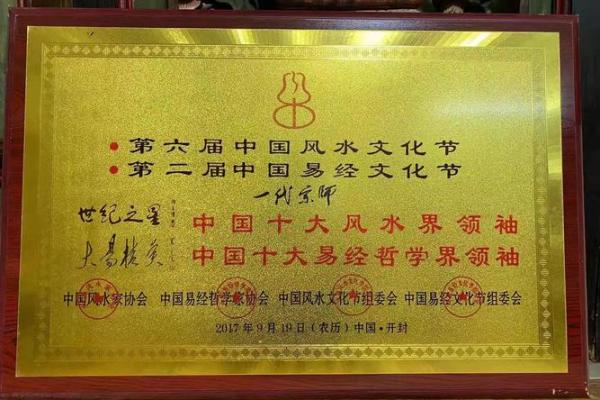 • 第六届中国风水文化节
• 第二届中国易经文化节
一代宗师
世纪之星
中国十大风水界领袖
大易精英
中国十大易经哲学界领袖
中国风水家协会 中国易经哲学家协会 中国风水文化节组委会 中国易经文化节组委会
2017年9月19日（农历）中国·开封